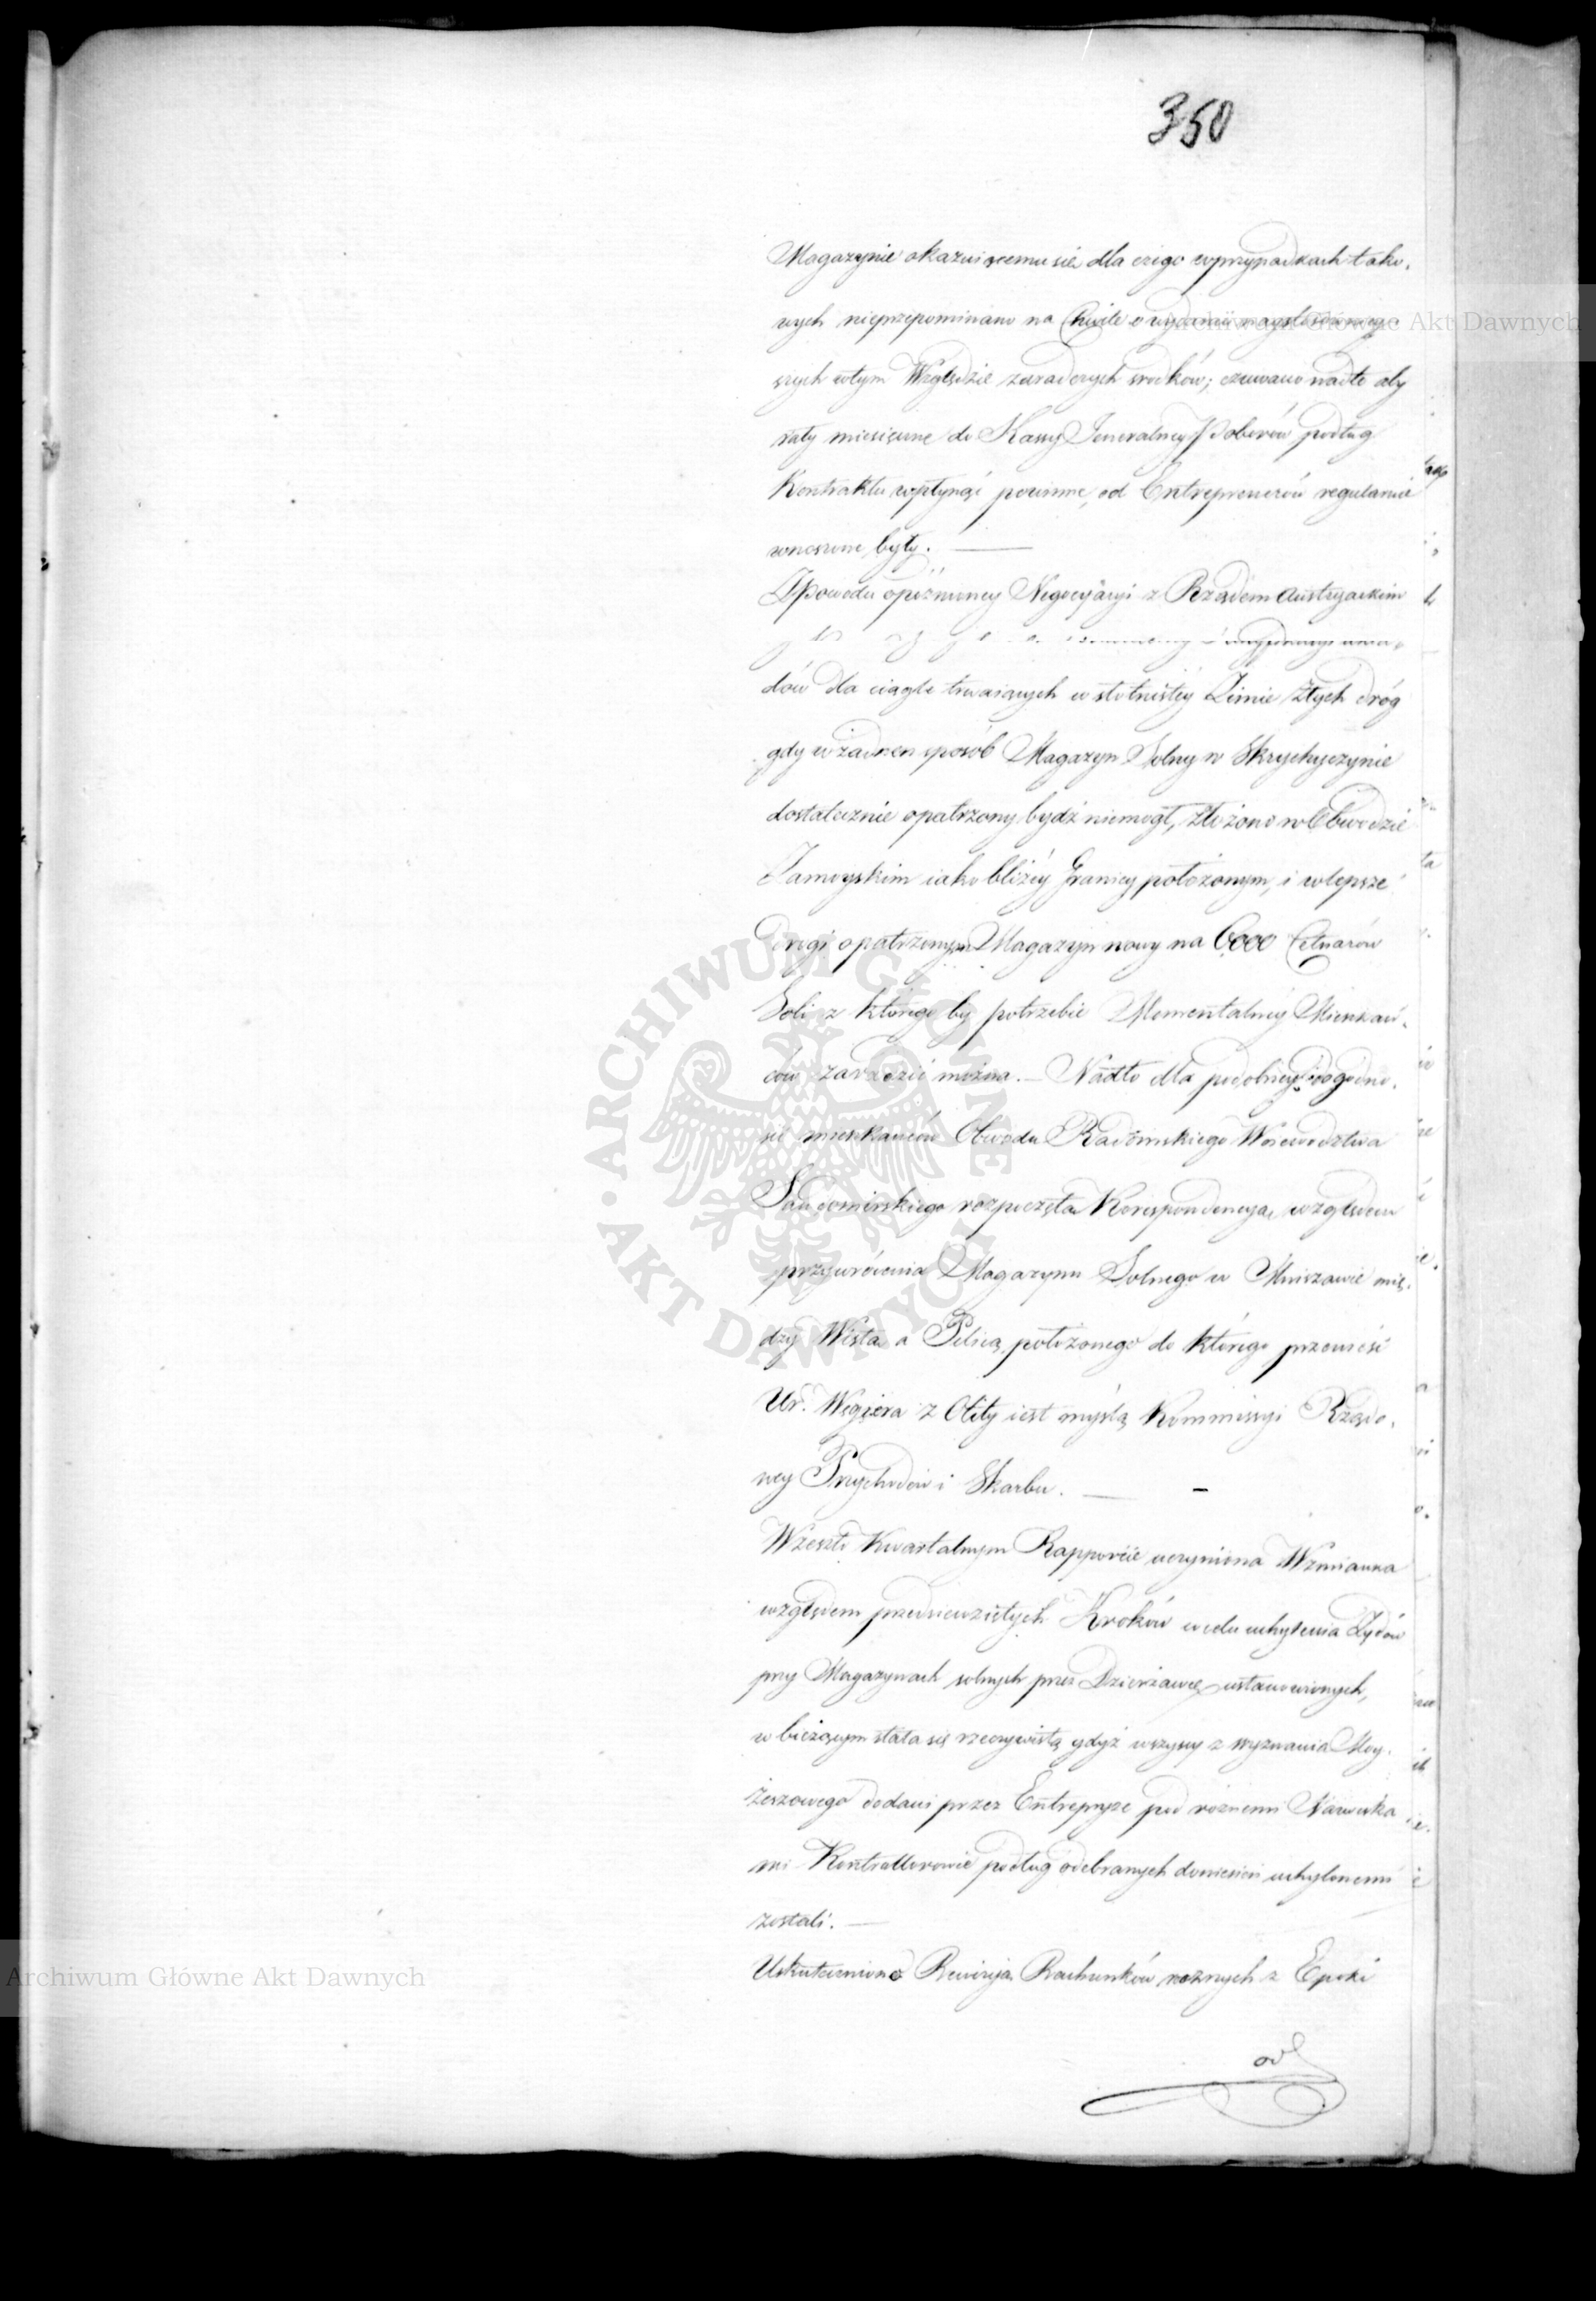 350
Magazynie okazuiącemu się, dla czego w przypadkach tako,
wych nieprzepominano na Chwile o wydaniu naystosowniey,
szych w tym Względzie zaradczych srodków; czuwano nadto aby
raty miesięczne do Kassy Jeneralney Poborów podług
Kontraktu wpłynąć powinne, od Entreprenerów regularnie
wnoszone były. —
Z powodu opóźnioney Negocyacyi z Rządem Austryackim
dów dla ciągle trwaiących w słotnistéy Zimie złych dróg
gdy w żaden sposób Magazyn Solny w Skryhyczynie
dostatecznie opatrzony bydź niemógł, złożono w Obwodzie
Zamoyskim iako bliżéy Granicy położonym, i w lepsze
drogi opatrzonym Magazyn nowy na 6000 Cetnarów
Soli z którego by potrzebie Momentalnéy Mieszkań,
ców zaradzić można. — Nadto dla podobney dogodno,
ści mieszkańców Obwodu Radomskiego Woiewodztwa
Sandomirskiego rozpoczęta Korespondencya, względem
przywrócenia Magazynu Solnego w Mniszewie mię,
dzy Wisłą a Pilicą położonego do którego przenieść
Ur. Węgiera z Olity iest myślą Kommissyi Rządo,
wey Przychodów i Skarbu. — –
W zeszło Kwartalnym Rapporcie uczyniona Wzmianka
względem przedsiewziętych Kroków w celu uchylenia Żydów
przy Magazynach solnych przez Dzierżawcę ustanowionych,
w bieżącym stała się rzeczywistą gdyż wszyscy z wyznania Moy,
żeszowego dodani przez Entrepryze pod różnemi Nazwiska,
mi Kontrollorowie podług odebranych doniesień uchylonemi
zostali. —
Uskuteczniono Rewizyą Rachunków rożnych z Epoki
od
Archiwum Główne Akt Dawnych
Archiwum Główne Akt Dawnych
ARCHIWUM GŁÓWNE AKT DAWNYCH